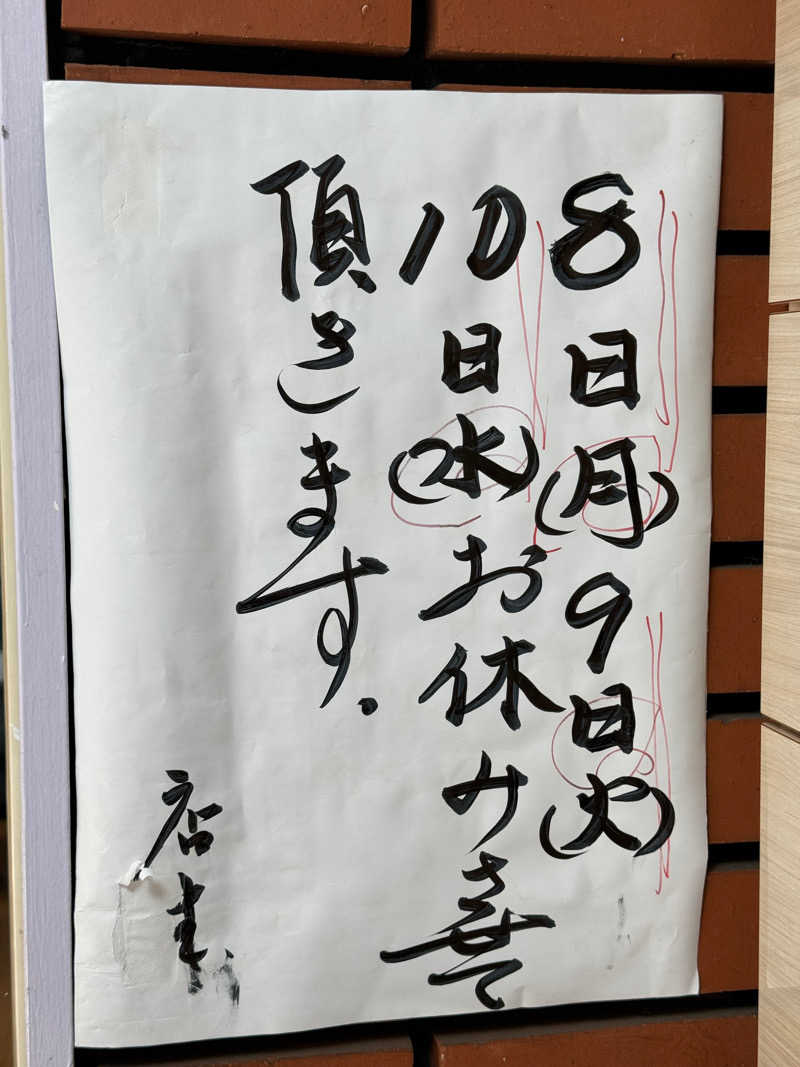 8日(月)9日(火)
10日(水)お休みさせて
頂きます.
店主